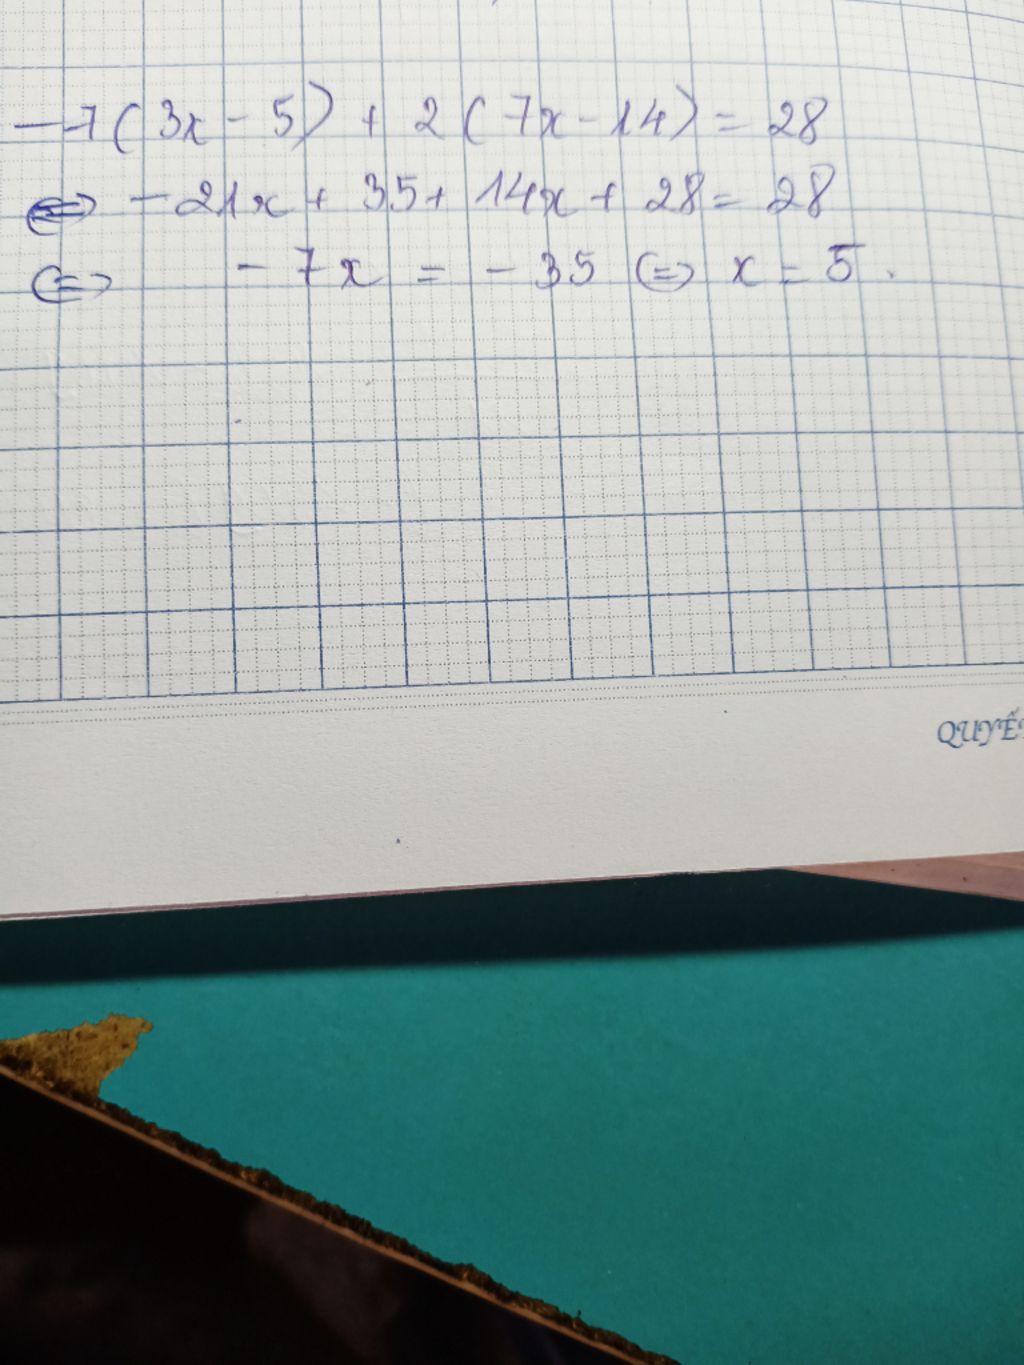 -7(3x-5)+2(7x-14)=28
⇔ -21x+35+14x+28=28
⇔ -7x=-35 ⇔ x=5.